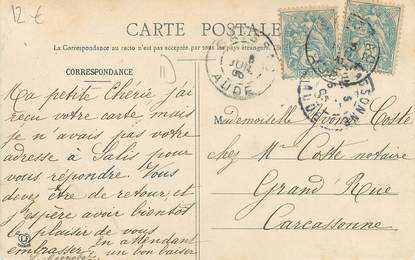 12 €
CARTE POSTALE
La Correspondance au recto n'est pas acceptée par tous les pays étrangers.
CORRESPONDANCE
Ma petite Chérie j'ai
reçu votre carte, mais
je n'avais pas votre
adresse à Salis pour
vous répondre. Vous
devez être de retour, et
j'espère avoir bientôt
le plaisir de vous
embrasser, en attendant
un bon baiser
Mademoiselle Yvonne Coste
chez Mr Coste notaire
Grand' Rue
Carcassonne
JUIL
AUDE